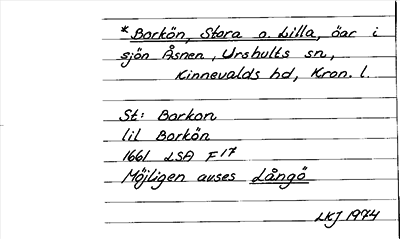 *Borkön, Stora o. Lilla, öar i
sjön Åsnen, Urshults sn,
Kinnevalds hd, Kron. l.
St: Borkon
lil Borkön
1661 LSA F17
Möjligen avses Långö
LKJ 1974